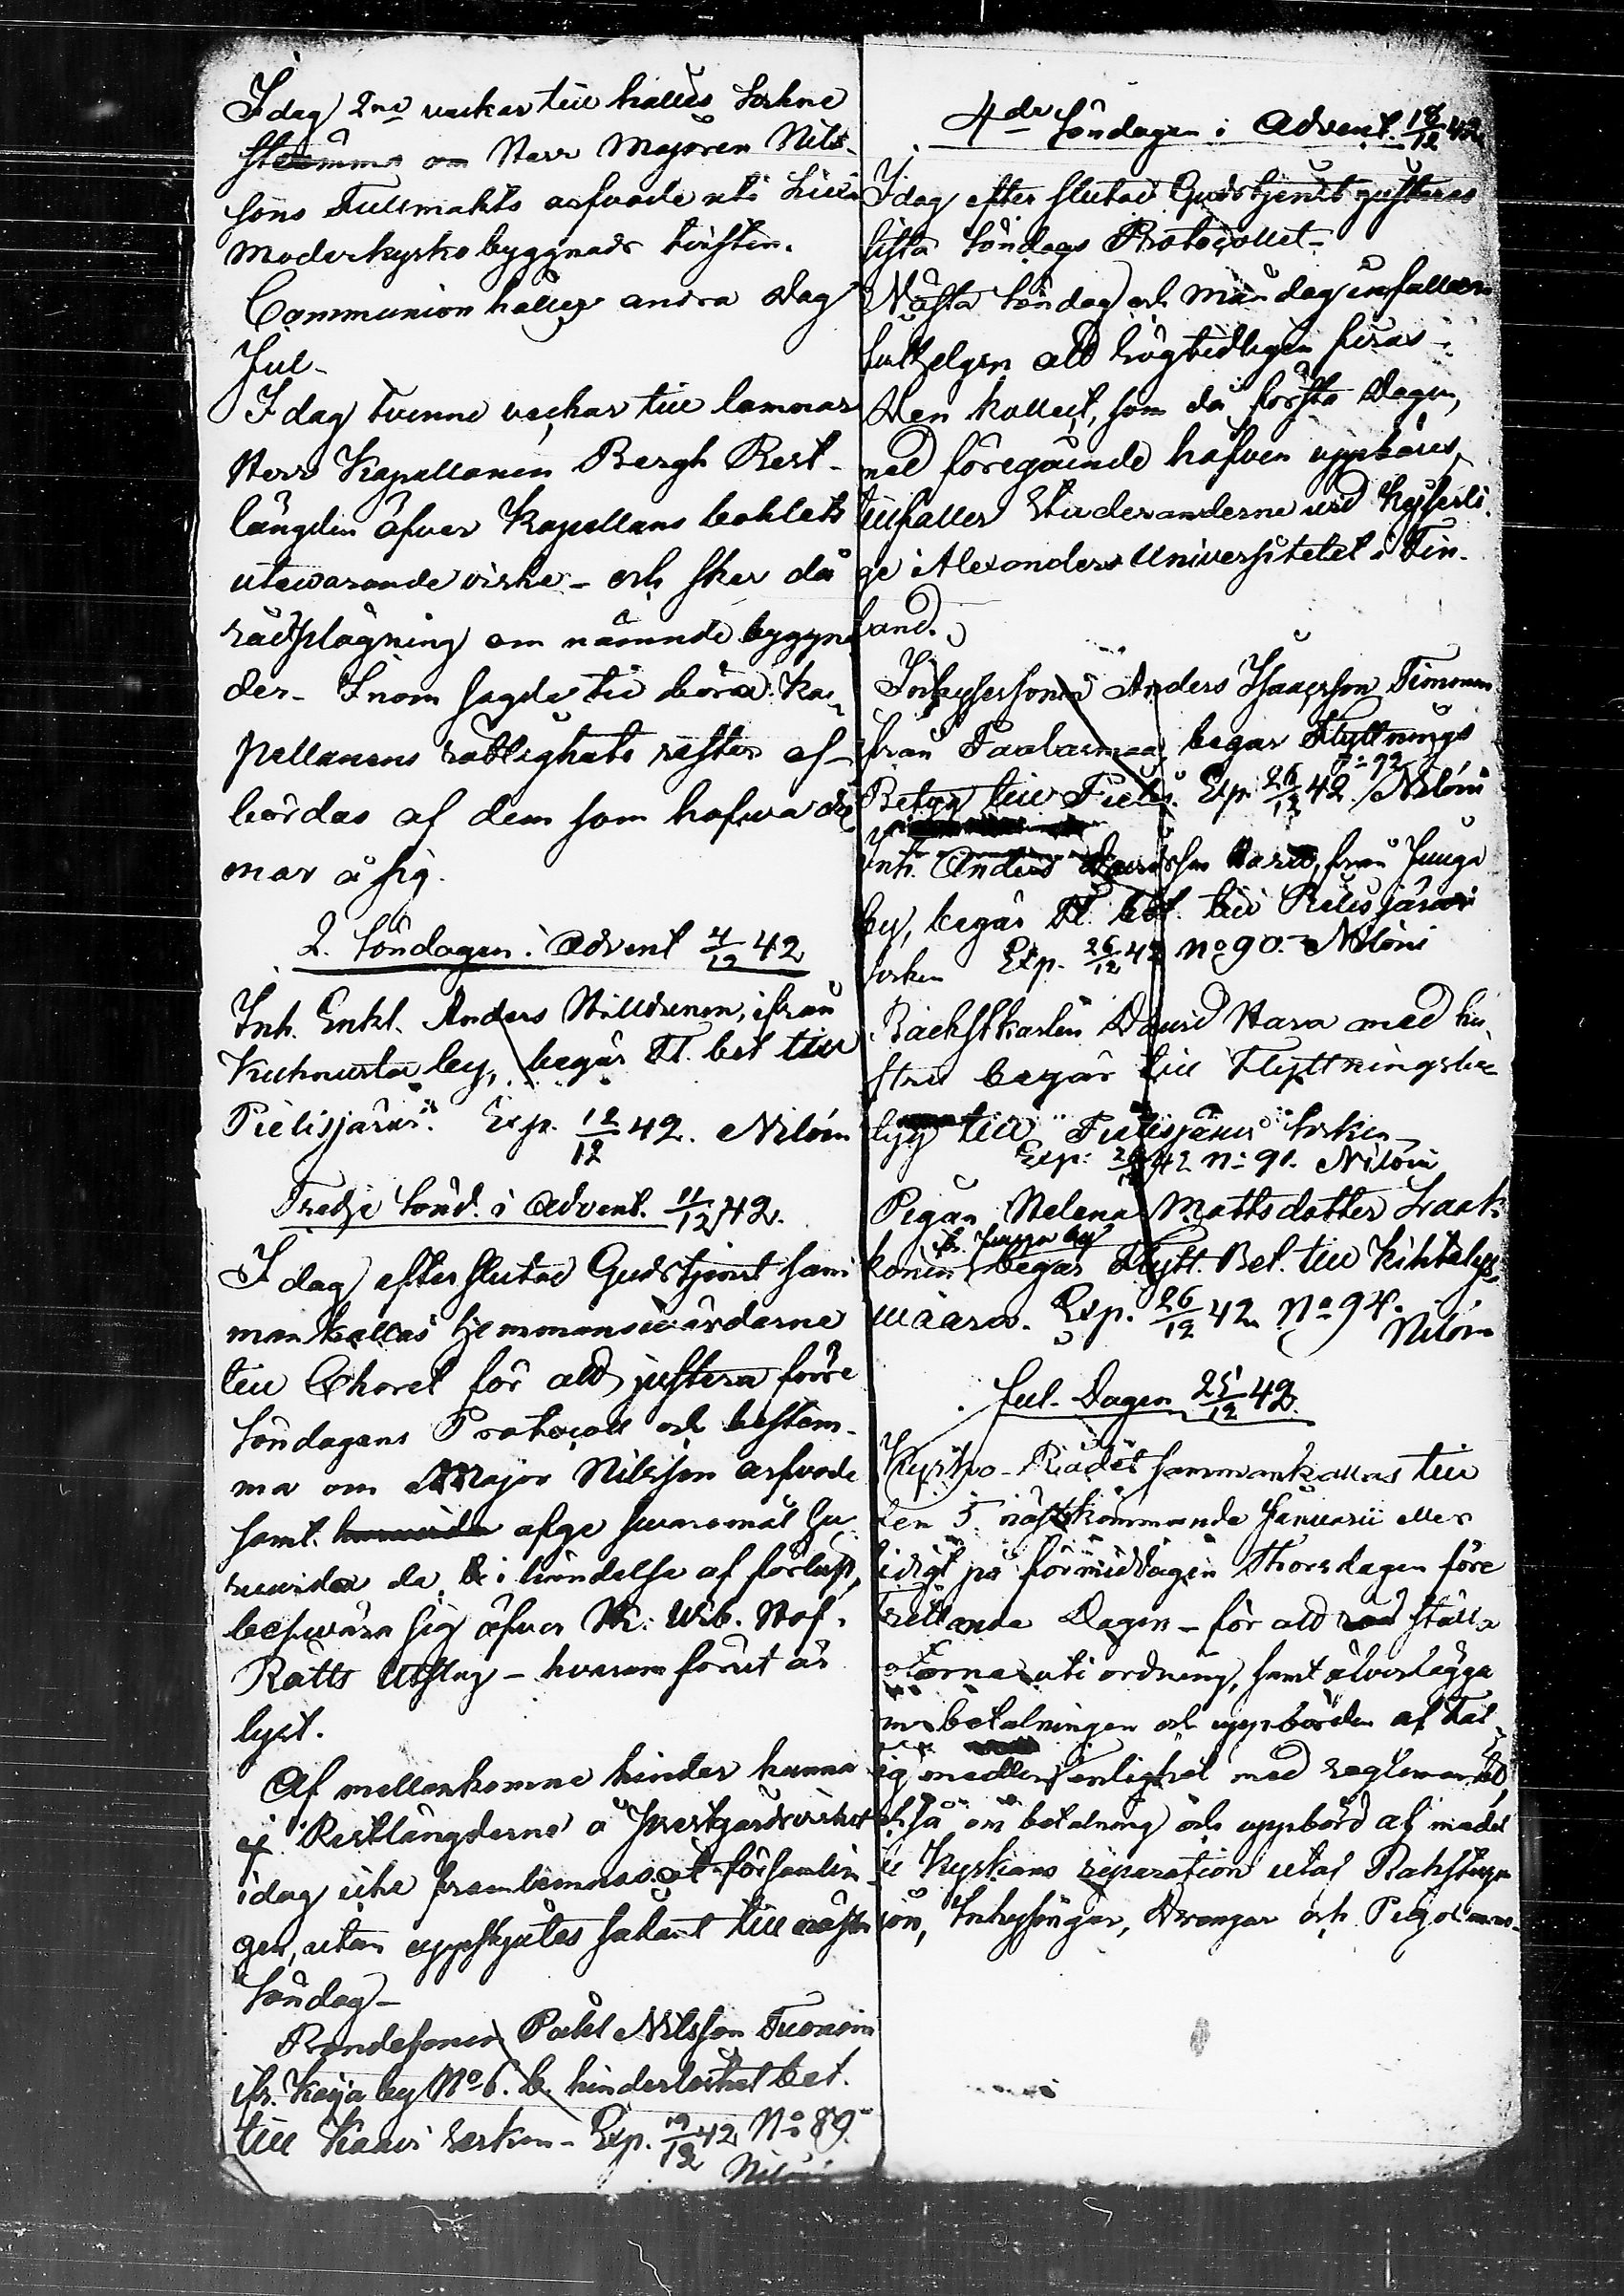 I dag 2ne veckor till hålles Sockne
stämma om Herr Majoren Nils-
sons Fullmakts arfvode uti Liiwi
Moderkyrko byggnads tvisten.
Communion hålles andra dag
Jul-
I dag tvenne veckor till lemnar
Herr Kapellanen Bergh Rest-
längden öfver Kapellans bohlets
utewarande virke - och sker då
rådplägning om nämnde byggna
der - Inom sagde tid böra Ka-
pellanens rättighets rester af-
bördas af dem som hafwa såd
mar å sig.
2. Söndagen i Advent 4/12 42
Inh. Enkl. Anders Hilldunen, ifrån
Kuhnusta by, begär Fl. bet till
Pielisjärvi. Exp. 12/12 42. Nilóni
Tredje Sönd. i Advent. 11/12 42.
I dag efter slutad Gudstjenst sam
mankallas hemmansvärdarne
till Choret för att justera förre
Söndagens Protocoll och bestäm-
ma om Major Nilsson arfvode
samt afge swaromål hu
ruvida de i händelse af förlust,
beswära sig öfver K: Wib. Hof-
Rätts Utslag - hvarom förut är
lyst.
Af mellankomne hinder kunna
ej Restlängderne å Prestgårdsvirket
idag icke framlemnas åt församlin
gen, utan uppskjutes sådant till nästa
Söndag -
Bondesonen Påhl Nilsson Tuononen
ifr. Koija by No 6. b. hinderlöshet bet.
till Kaavi Socken - Exp. 19/12 42 No 89.
Nilóni
4de Söndagen i Advent. 18/12 42
I dag efter slutad Gudstjenst justeras
sista Söndags Protocollet -
Nästa Söndag och Måndag infaller
Julhelgen att högtidligen firas -
Den kollect, som då första Dagen,
med föregående håfven uppbäres,
tillfaller Studeranderne vid Kejserli-
ge Alexanders Universitetet i Fin-
land.
Inhysesonen Anders Isaacsson Timonen
från Paalasmaa, begär Flyttnings
Betyg till Pielis. Exp. 26/12 42. No 92 Nilóni
Inh. Anders Davidsson Hara, från Juuga
by, begär Fl. bet. till Pielisjärvi
socken Exp. 26/12 42 No 90. - Nilóni
Backstkarlen David Hara med hu-
stru begär till Flyttningsbe
tyg till Pielisjärvi Socken
Exp: 26/12 42 No 91. Nilóni
Pigan Helena Mattsdotter Laak-
konen ifr. Juuga by begär Flytt. Bet. till Kihtelys-
waara. Exp. 26/12 42 No 94.
Nilóni
Jul-Dagen 25/12 42.
Kyrko-Rådet sammankallas till
den 5. nästkommande Januarii eller
tidigt på förmiddagen Thorsdagen före
Trettonde Dagen - för att ställa
rotorna uti ordning, samt öfverlägga
om betalningen och uppbörden af Fat-
tig medlen i enlighet med reglementet,
och så om betalning och uppbörd af medel
till Kyrkans reparation utaf Backstugu
hjon, Inhysingar, Drängar och Pigorna -